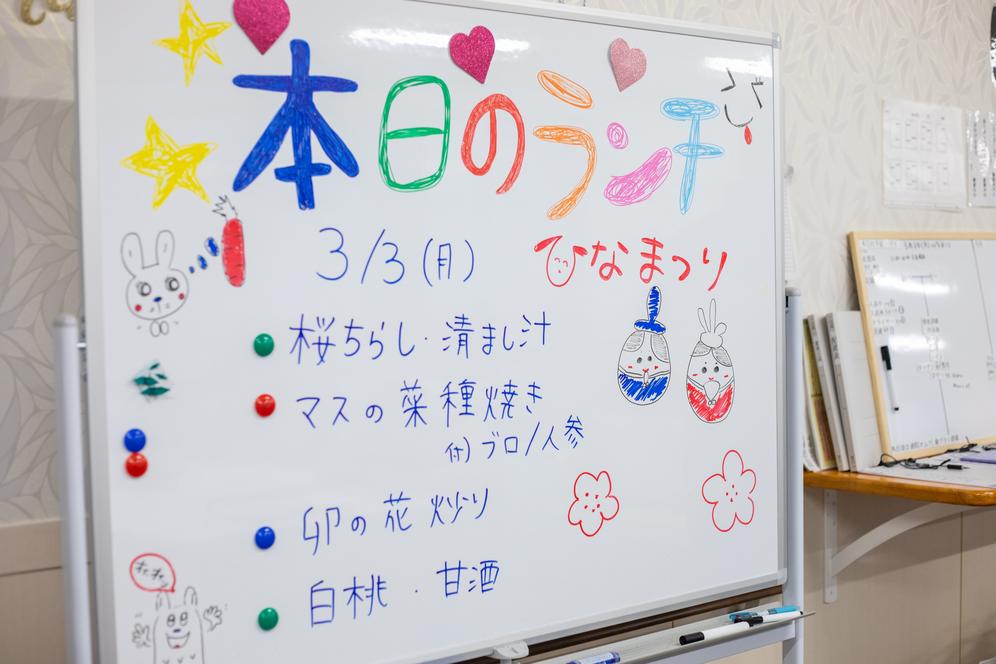 本日のランチ
3/3(月)
ひなまつり
桜ちらし・清まし汁
マスの菜種焼き
(付)ブロ/人参
卵の花炒り
白桃・甘酒